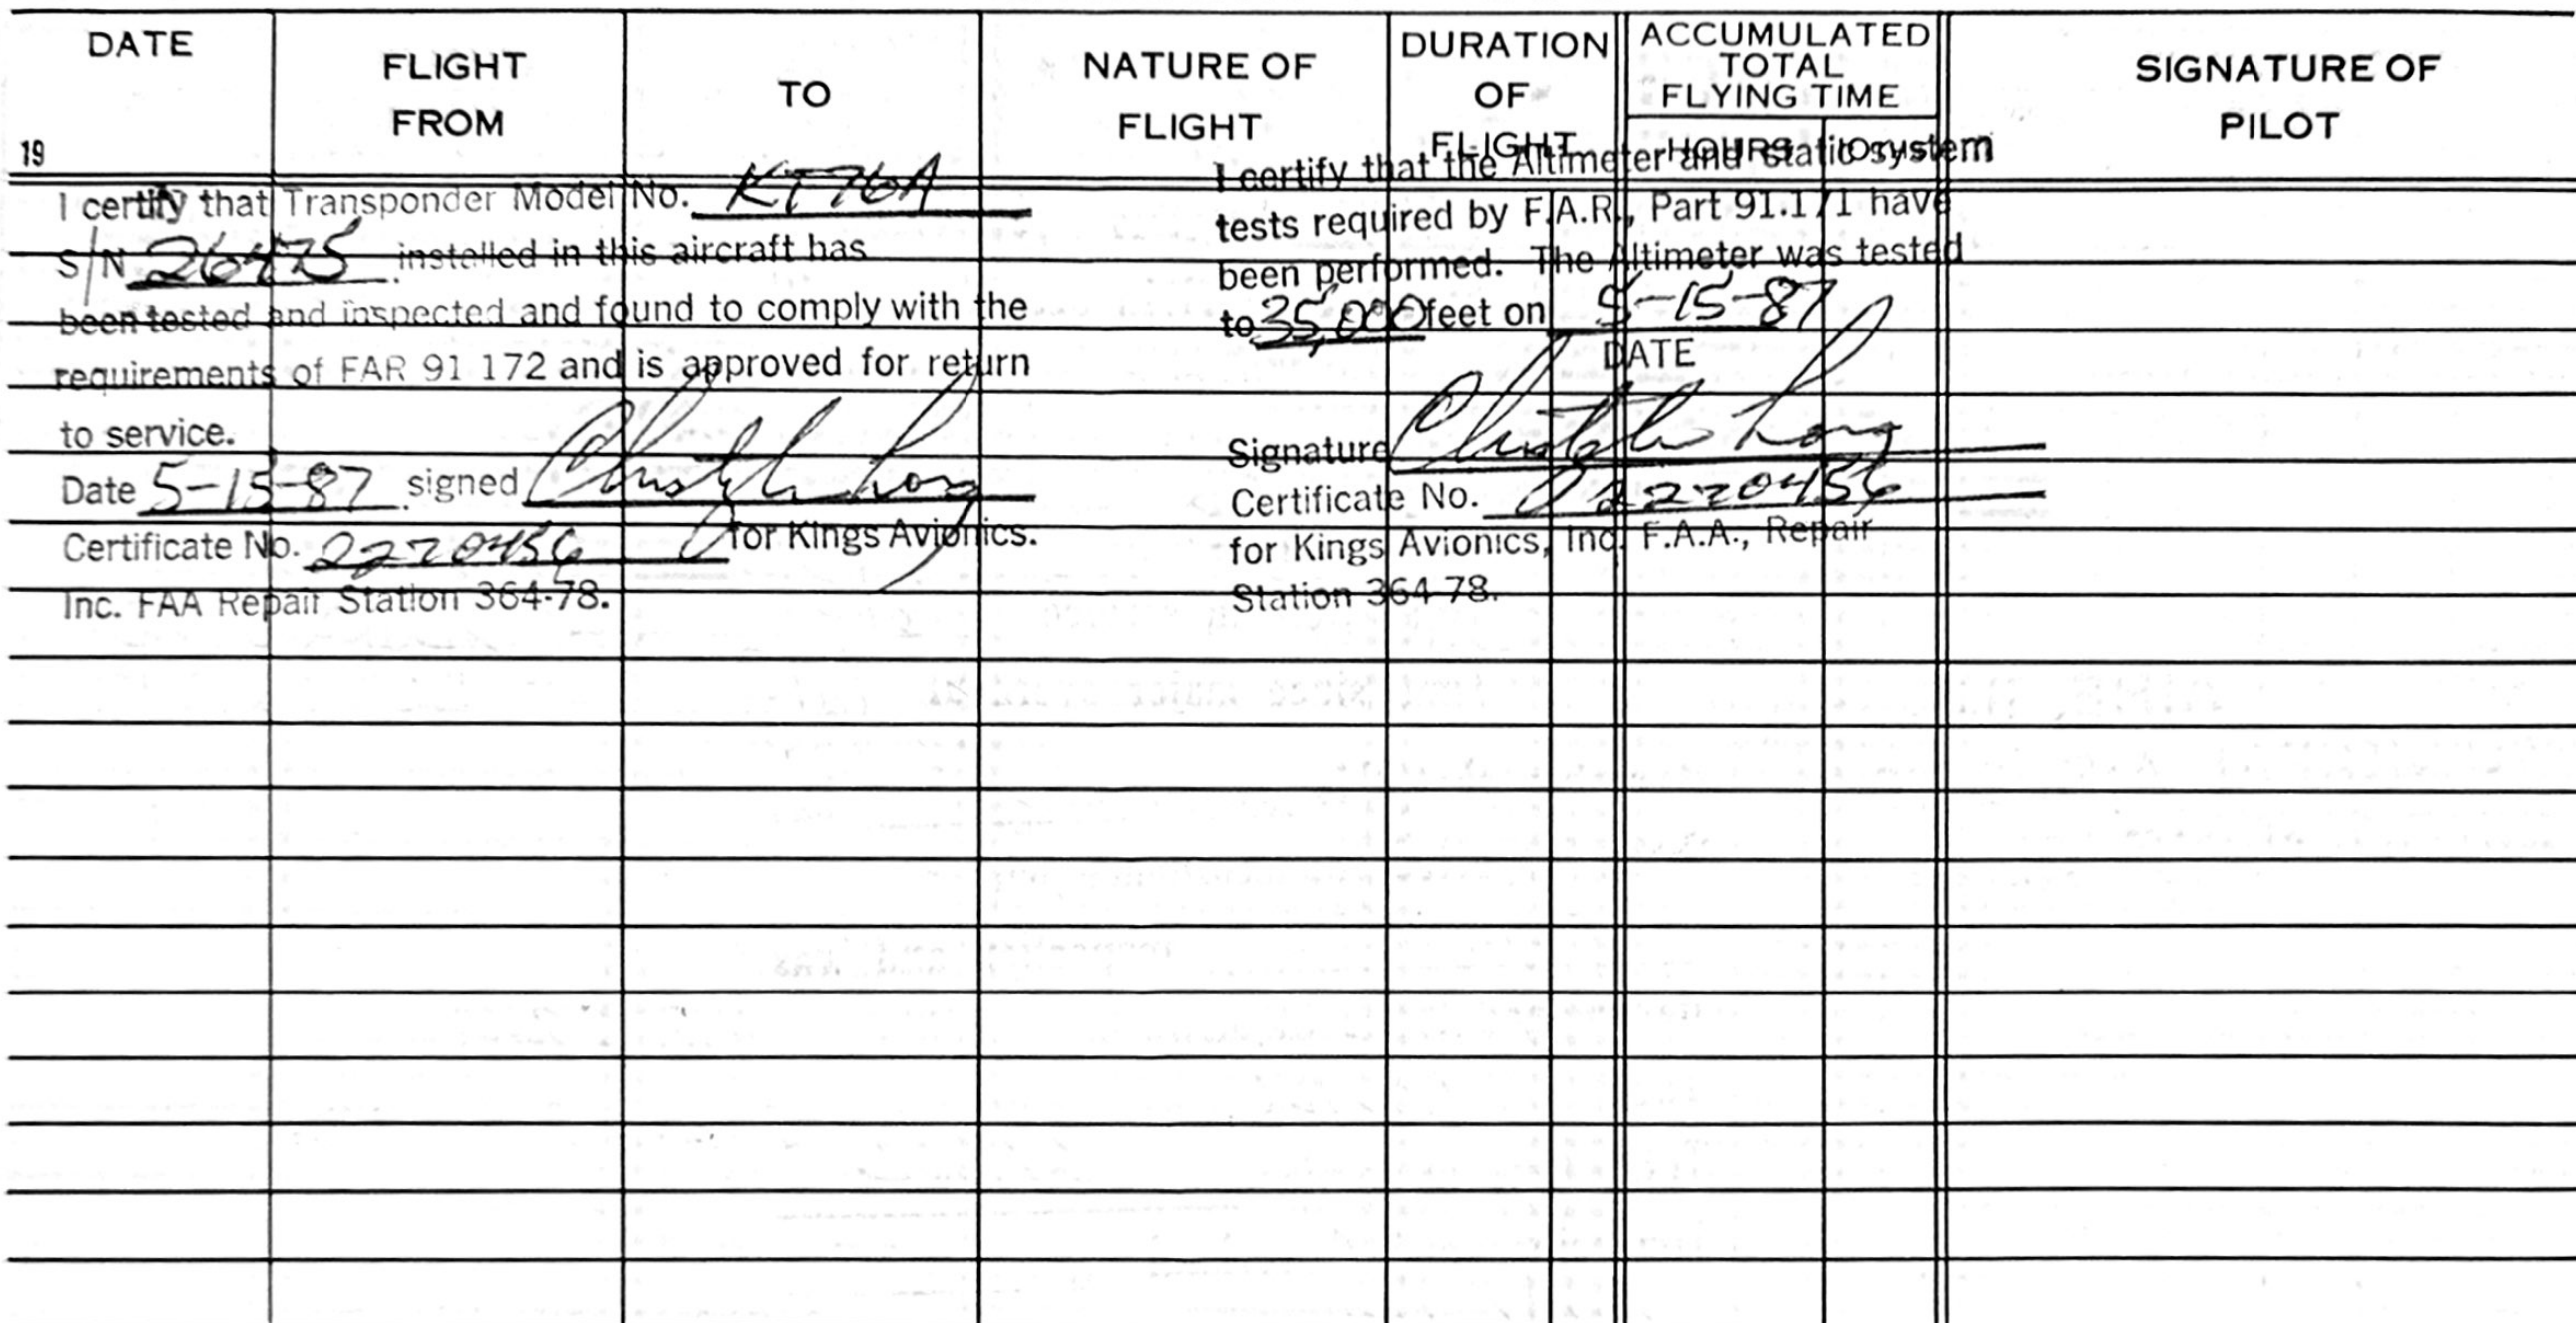 DATE
19
FLIGHT
FROM
TO
NATURE OF
FLIGHT
DURATION
OF
FLIGHT
ACCUMULATED
TOTAL
FLYING TIME
HOURS 10THS
SIGNATURE OF
PILOT
I certify that Transponder Model No. KT76A
S/N 26475 installed in this aircraft has
been tested and inspected and found to comply with the
requirements of FAR 91 172 and is approved for return
to service.
Date 5-15-87 signed
Certificate No. 2270456 for Kings Avionics.
Inc. FAA Repair Station 364-78.
I certify that the Altimeter and static system
tests required by F.A.R., Part 91.171 have
been performed. The Altimeter was tested
to 35,000 feet on 5-15-87
DATE
Signature
Certificate No. 2270456
for Kings Avionics, Inc. F.A.A., Repair
Station 364-78.